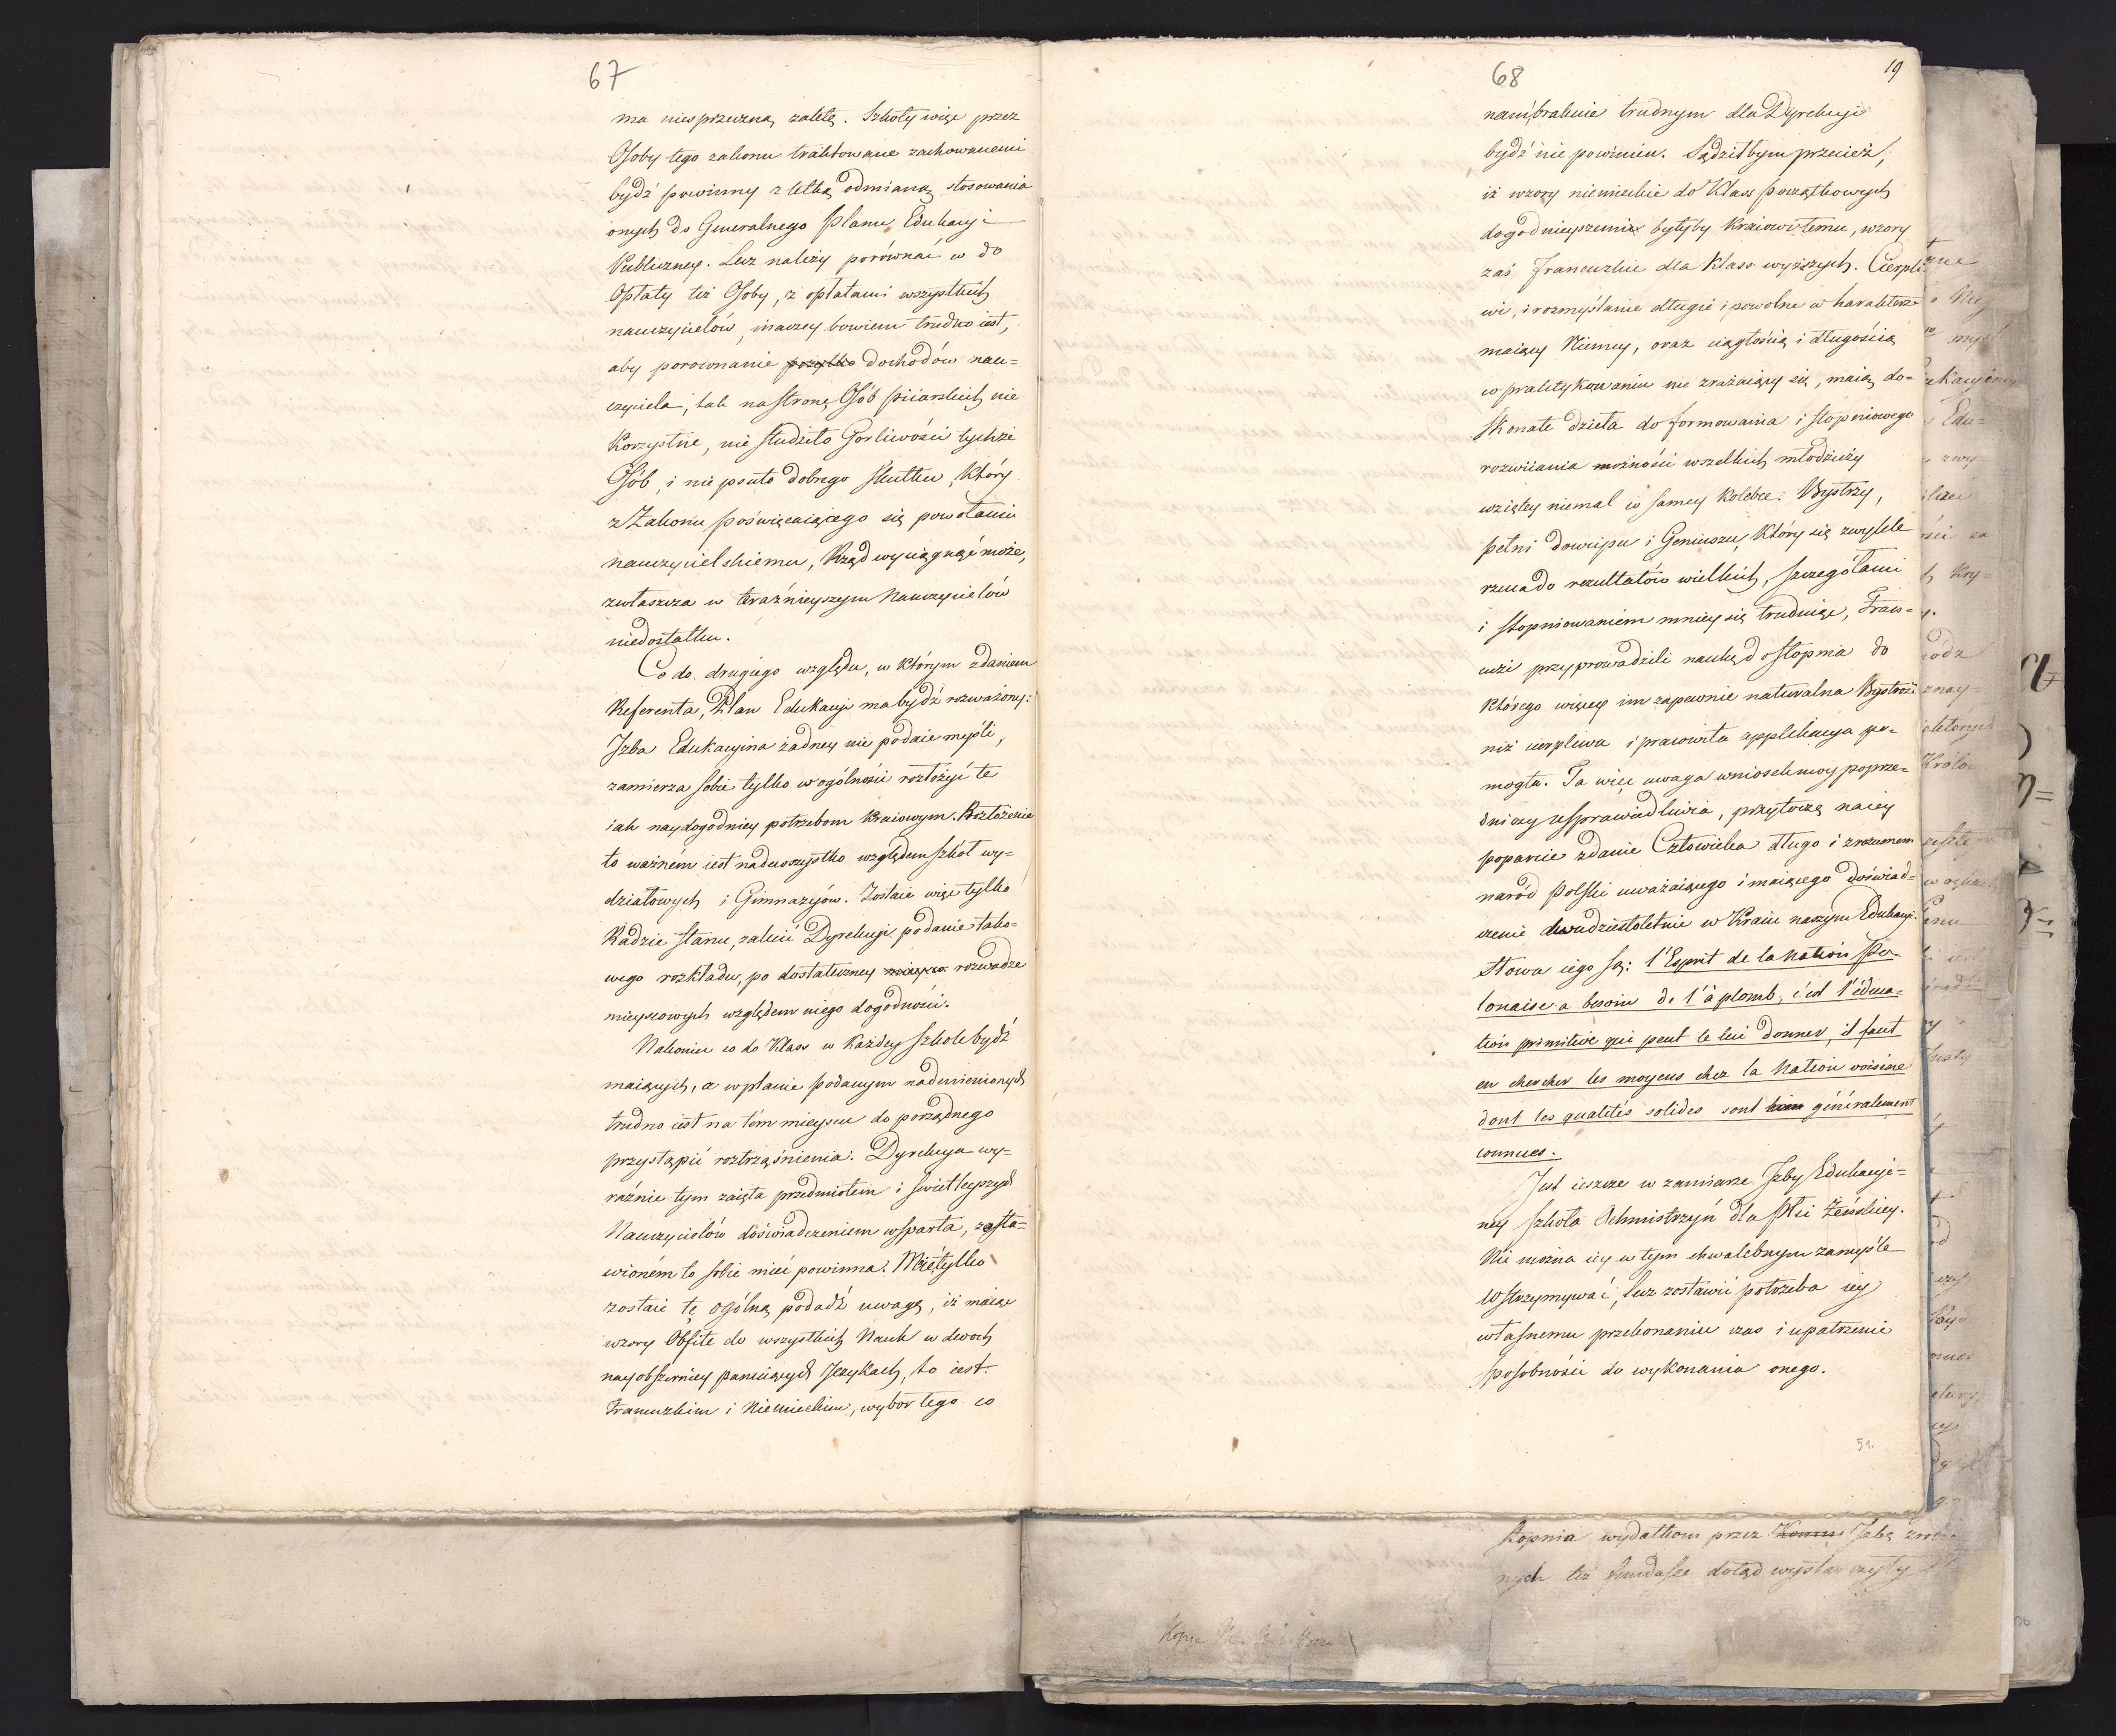 67
ma niesprzeczną zaletę. Szkoły więc przez
Osoby tego zakonu traktowane zachowanemi
bydź powinny z lekką odmianą stosowania
onych do Generalnego Planu Edukacyi
Publiczney. Lecz należy porównać co do
Opłaty też Osoby, z opłatami wszystkich
nauczycielów, inaczey bowiem trudno iest,
aby porownanie dochodów nau=
czyciela, tak na stronę Osób piiarskich nie
Korzystne, nie studziło Gorliwości tychże
Osób, i nie psuło dobrego skutku, Który
z Zakonu poświęcaiącego się powołaniu
nauczycielskiemu, Rząd wyciągnąć może,
zwłaszcza w teraźnieyszym Nauczycielów
niedostatku.
Co do drugiego względu, w którym zdaniem
Referenta, Plan Edukacyi ma bydź rozważony:
Jzba Edukacyina żadney nie podaie myśli,
zamierza sobie tylko w ogólności rozłożyć te
iak naydogodniey potrzebom kraiowym. Rozłożenie
to ważném iest nadewszystko względem szkół wy=
działowych i Gimnazyów. Zostaie więc tylko
Radzie stanu, zalecić Dyrekcyi podanie tako=
wego rozkładu, po dostateczney rozwadze
mieyscowych względem niego dogodności.
Nakoniec co do Klass w każdey szkole bydź
maiących, a w planie podanym nadmienionych
trudno iest na tém mieyscu do porządnego
przystąpić roztrząśnienia. Dyrekcya wy=
raźnie tym zaięta przedmiotem i świetleyszych
Nauczycielów doświadczeniem wsparta, zosta=
wioném to sobie mieć powinna. Mnie tylko
zostaie tę ogólną podadź uwagę, iż maiąc
wzory Obfite do wszystkich Nauk w dwoch
nayobszerniey panuiących Językach, to iest.
Francuzkim i Niemieckim, wybor tego co
68
19
nam brakuie trudnym dla Dyrekcyi
bydź nie powinien. Sądziłbym przecież,
iż wzory niemieckie do Klass początkowych
dogodnieyszemi byłyby kraiowi temu, wzory
zaś francuzkie dla klass wyższych. Cierpli
wi, i rozmyślanie długie i powolne w harakterze
maiący Niemcy, oraz ciągłością i długością
w praktykowaniu nie zrażaiący się, maią do=
skonałe dzieła do formowania i stopniowego
rozwiiania możności wszelkich młodzieży
wziętey niemal w samey kolebce. Bystrzy,
pełni dowcipu i Geniuszu, Który się zwykle
rzuca do rezultatów wielkich, szczegółami
i stopniowaniem mniey się trudniąc, Fran=
cuzi przyprowadzili naukę do stopnia do
Którego więcey im zapewnie naturalna Bystrość
niż cierpliwa i pracowita applikacya po=
mogła. Ta więc uwaga wniosek moy poprze=
dniczy usprawiedliwia, przytoczę na iey
poparcie zdanie Człowieka długo i z rozumem
naród Polski uważaiącego i maiącego doświad=
czenie dwudziestoletnie w Kraiu naszym Edukacyi.
Słowa iego są: l'Esprit de la Nation Po=
lonaise a besoin de l'à plomb, c'est l'éduca=
tion primitive qui peut le lui donner, il faut
en chercher les moyens chez la Nation voisine
dont les qualités solides sont généralement
connues.
Jest ieszcze w zamiarze Jzby Edukacyi=
ney szkoła Ochmistrzyń dla Płci Żeńskiey.
Nie można iey w tym chwalebnym zamyśle
wstrzymywać, lecz zostawić potrzeba iey
własnemu przekonaniu czas i upatrzenie
sposobności do wykonania onego.
51.
stopnia wydatkom przez Jzbę
nych też fundusze dotąd
Kopia